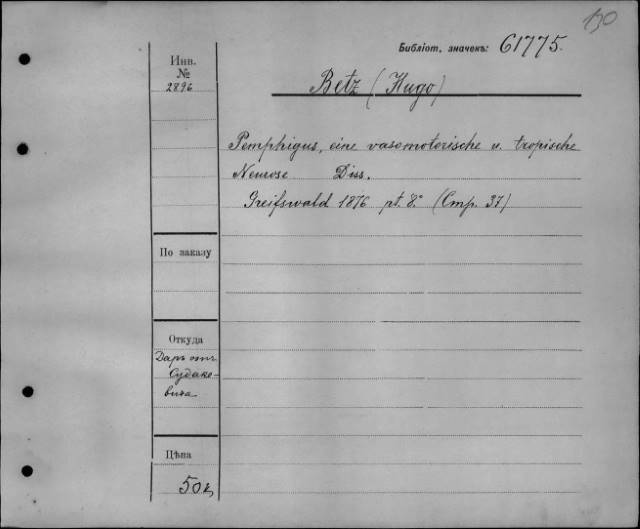 130
Библіот. значекъ: 61775.
Инв.
№
2896
Betz (Hugo)
Pemphigus, eine vasomotorische u. tropische
Neurose Diss.
Greifswald 1876 pt. 8° (Cmp. 37)
По заказу
Откуда
Даръ отъ
Судако-
вича
Цѣна
50 к.